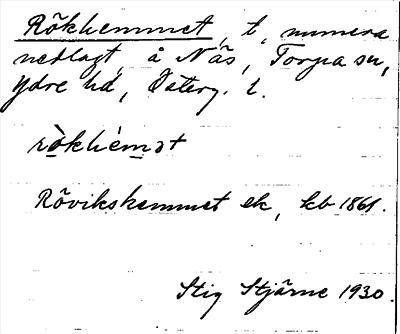 Rökhemmet, t, numera
nedlagt, å Näs, Torpa sn,
Ydre hd, Österg. l.
rökhemət
Rövikshemmet ek, kb 1861.
Stig Stjärne 1930.